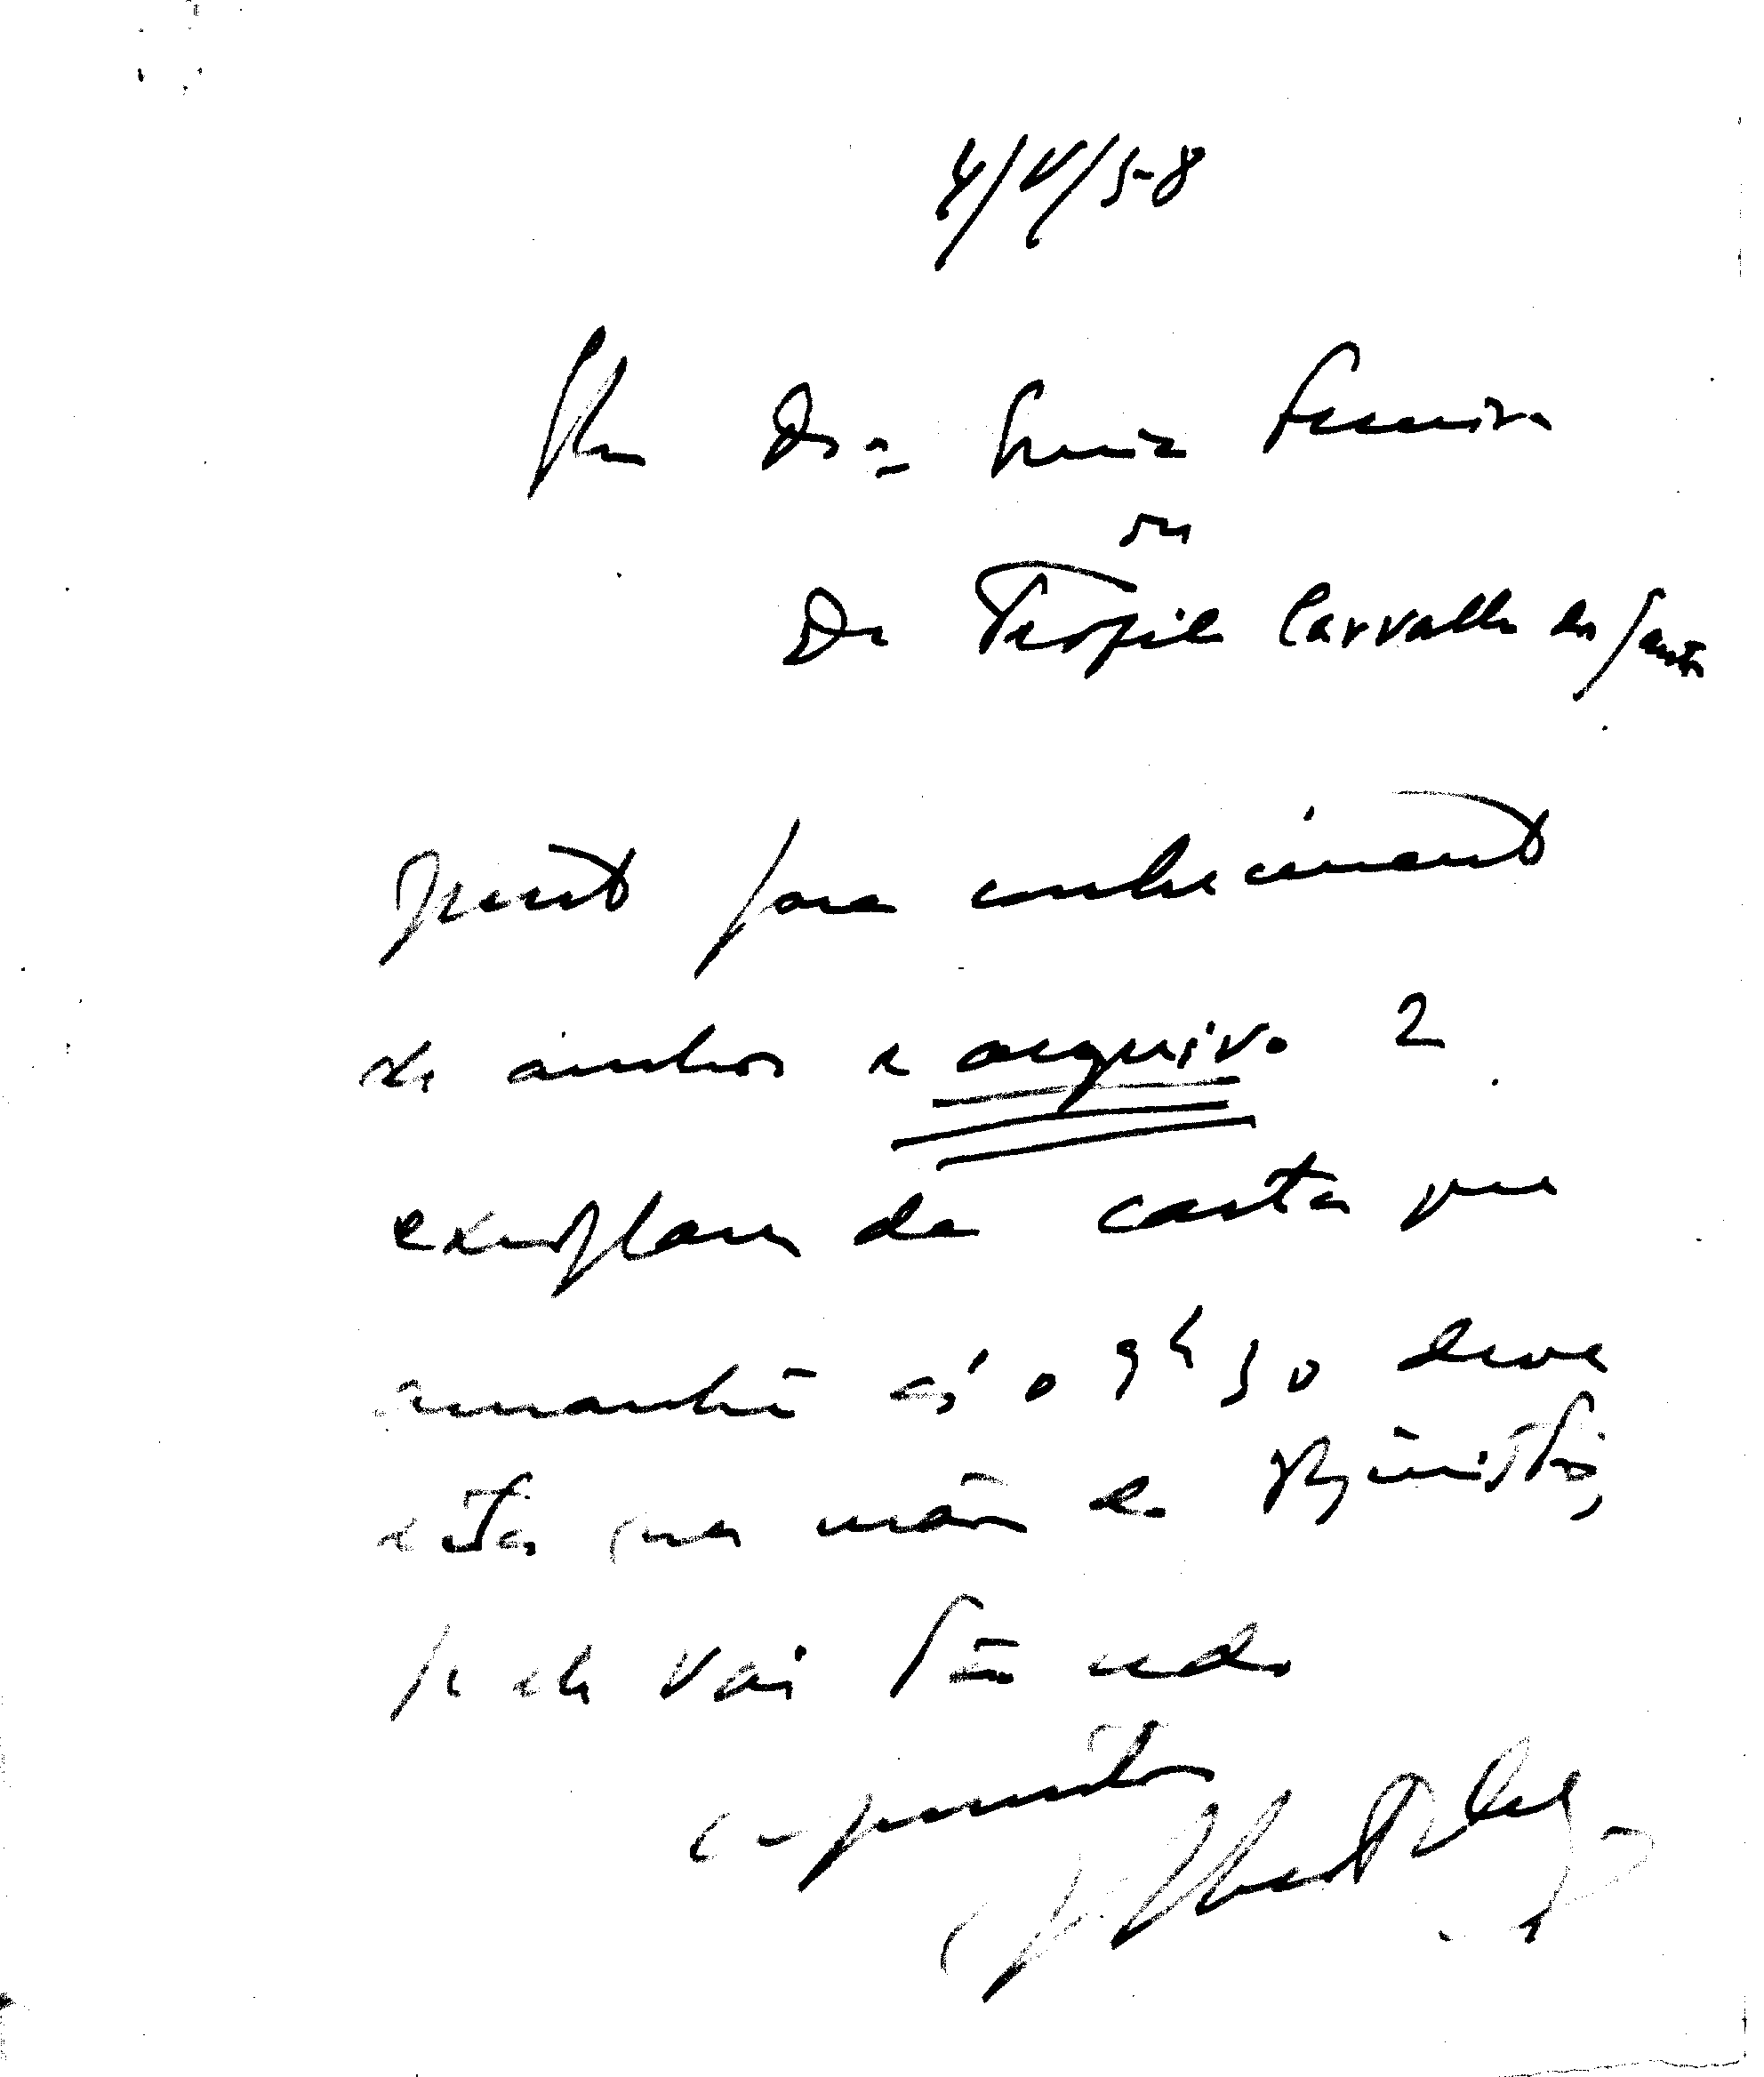 4/V/58
Dr.ª Ferreira
ou
Dr Teofilo Carvalho dos Santos
Junto para conhecimento
de ambos e arquivo 2
exemplares da carta que
amanhã às 9h 30 deve
estar nas mãos do Ministro,
vai
Cumprimentos